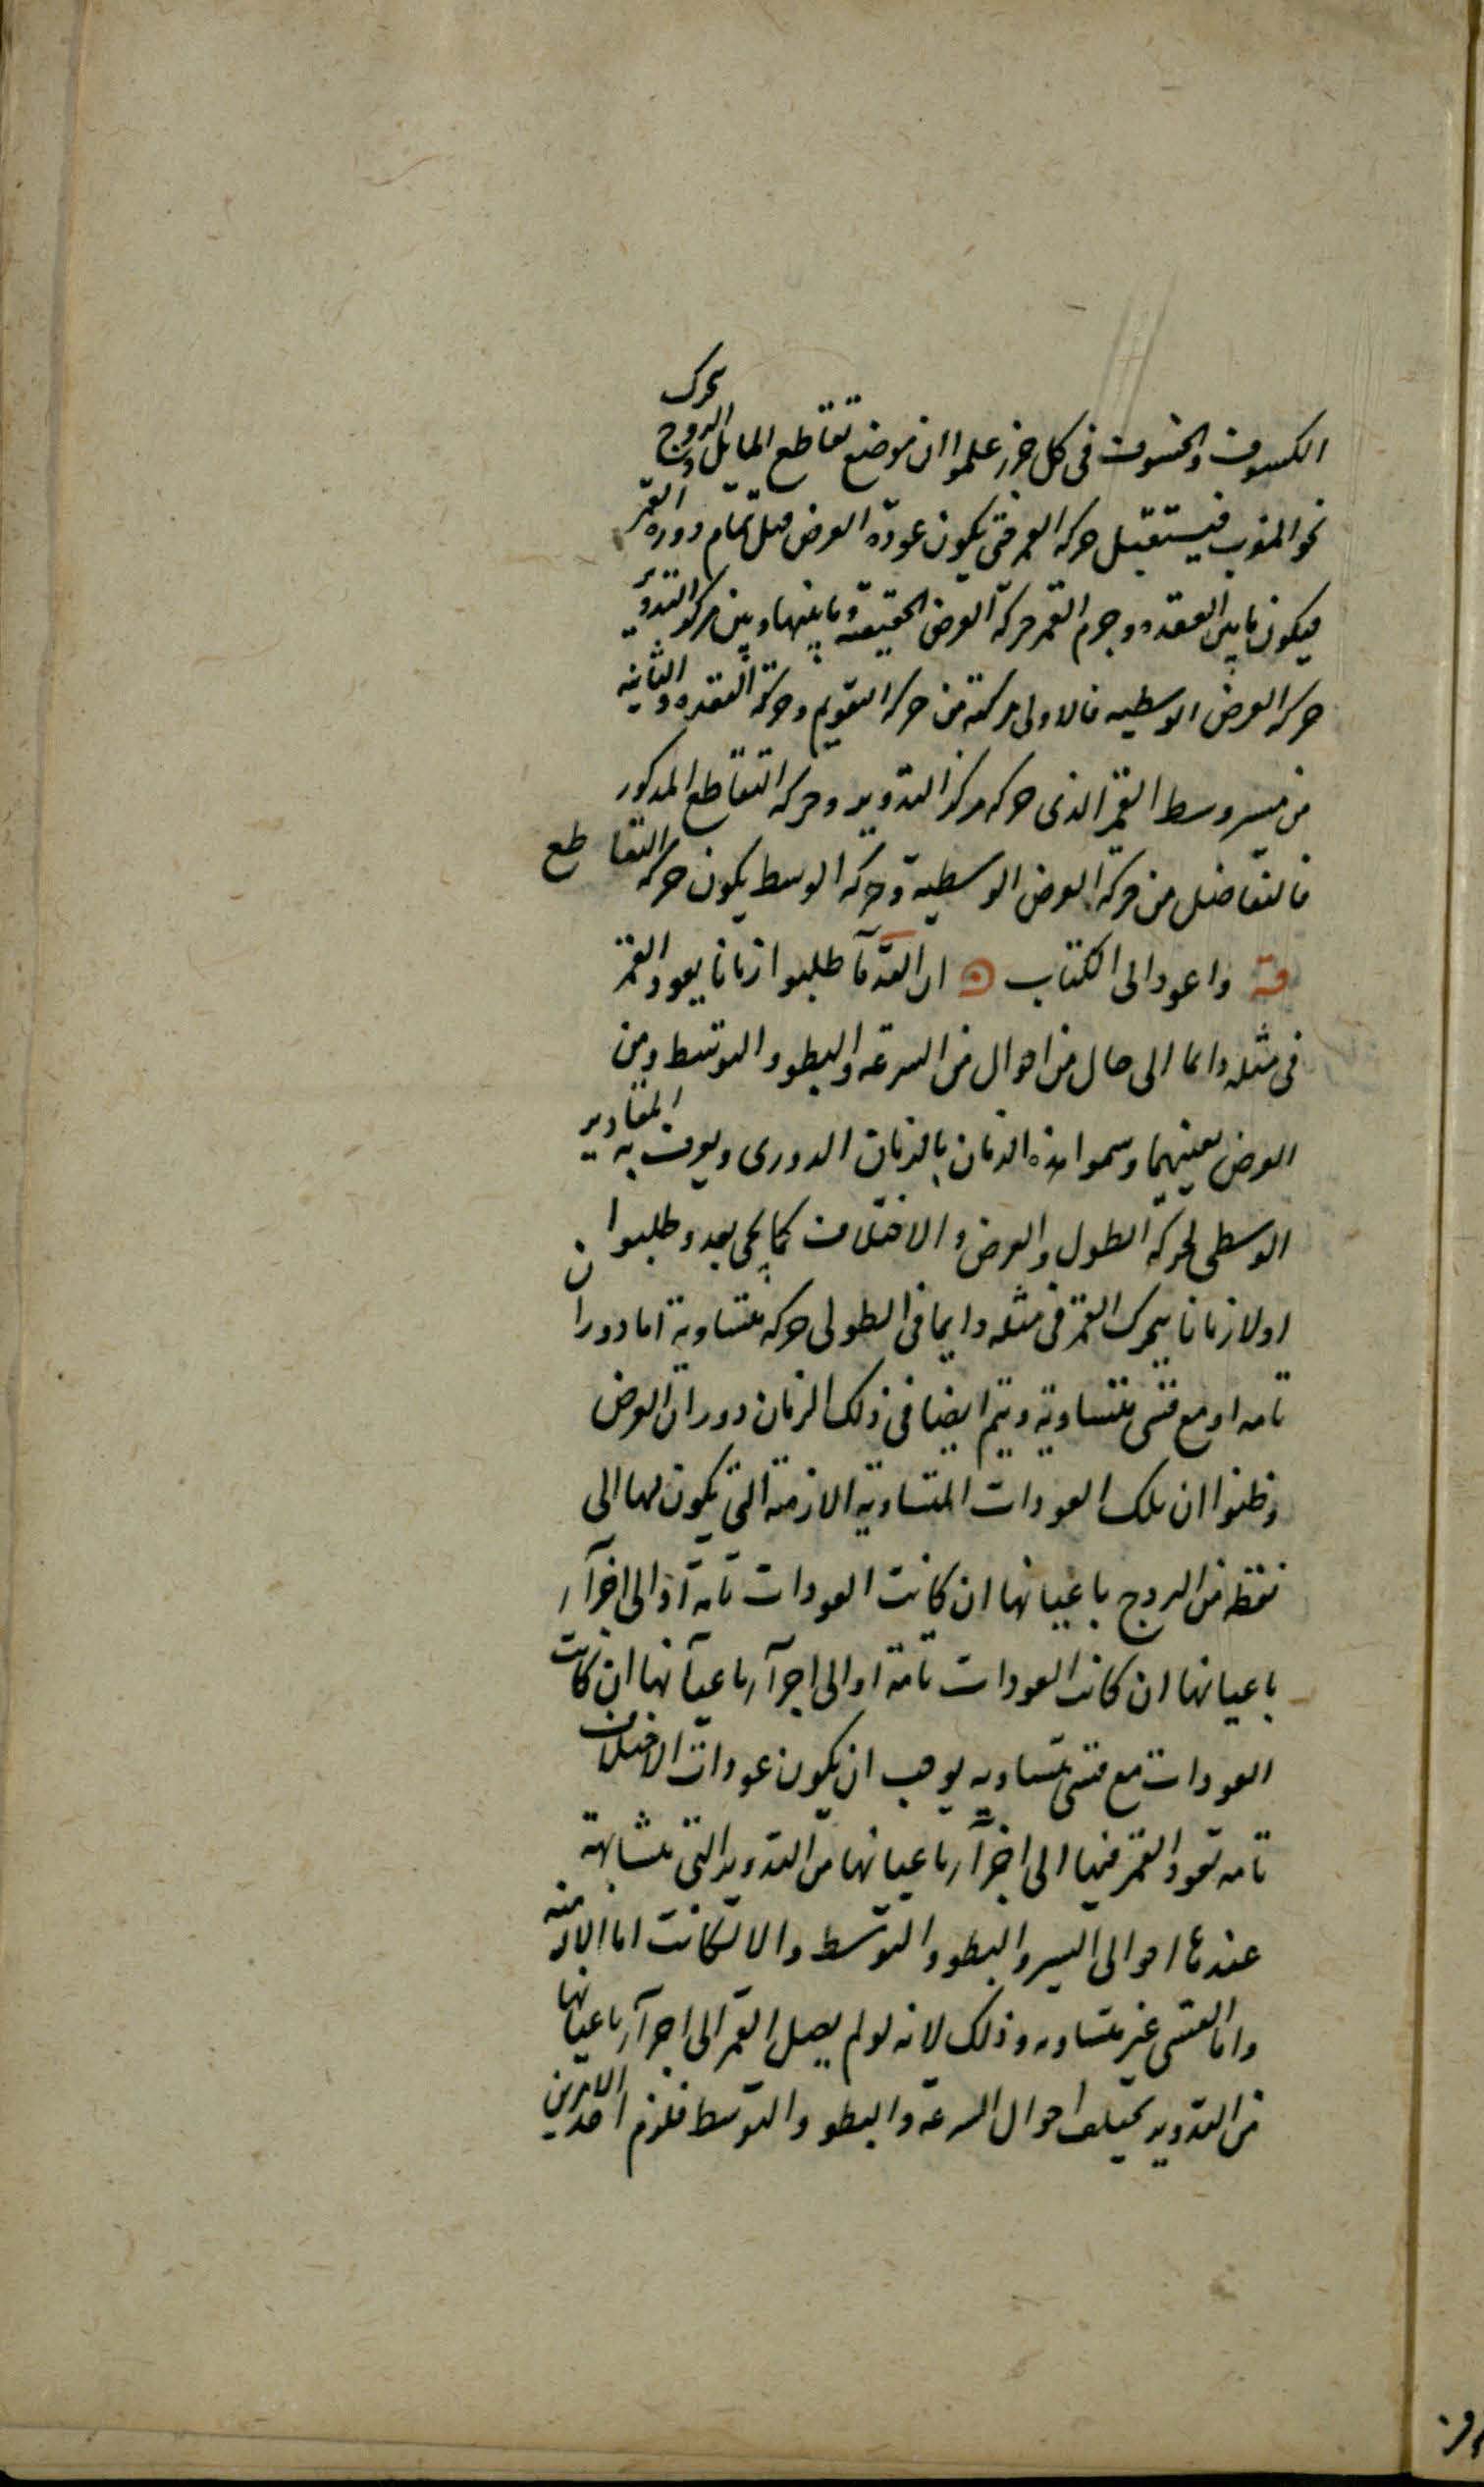 الكسوف والخسوف فى كل جزء علموا ان موضع تقاطع المايل والبروج يتحرك
نحو المغرب فيستقبل حركه القمر فتى يكون عودة العرض قبل تمام دوره القمر
فيكون ما بين العقده وجرم القمر حركة العرض الحقيقية وما بينها وبين مركز التدوير
حركه العرض الوسطيه فالاولى مركبة من حركه التقويم وحركة العقده والثانيه
من مسير وسط القمر الذى حركه مركز التدوير وحركه التقاطع المذكور
فالتفاضل من حركة العرض الوسطية وحركه الوسط يكون حركه التقاطع
واعود الى الكتاب ان القدمآ طلبوا زمانا يعود القمر
فى مثله دائما الى حال من احوال من السرعة والبطو والتوسط ومن
العرض بعينهما وسموا هذه الزمان بالزمان الدورى ويعرف به المقادير
الوسطى لحركه الطول والعرض والاختلاف كما يجى بعد وطلبوا
اولا زمانا يتحرك القمر فى مثله دايما فى الطول حركه متساوية اما دوران
تامه او مع قسى متساوية ويتم ايضا فى ذلك الزمان دوران العرض
وظنوا ان تلك العودات المتساوية الازمنة التى يكون لها الى
نقطه من البروج باعيانها ان كانت العودات تامة او الى اجزآء
باعيانها ان كانت العودات تامة او الى اجزآء باعيانها ان كانت
العودات مع قسى متساويه يوجب ان يكون عودات الاختلاف
تامه تعود القمر فيها الى اجزآء باعيانها من التدوير التى متشابهة
عندها احوال السير والبطو والتوسط والا لكانت اما الازمنه
واما القسى غير متساوىه وذلك لانه لو لم يصل القمر الى اجزآء باعيانها
من التدوير يختلف احوال السرعة والبطو والتوسط فلزم احد الامرين